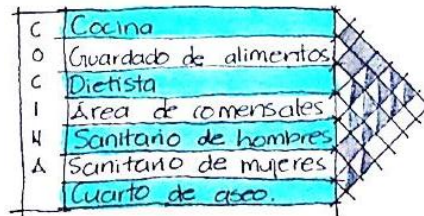 COCINA
Cocina
Guardado de alimentos
Dietista
Área de comensales
Sanitario de hombres
Sanitario de mujeres
Cuarto de aseo.